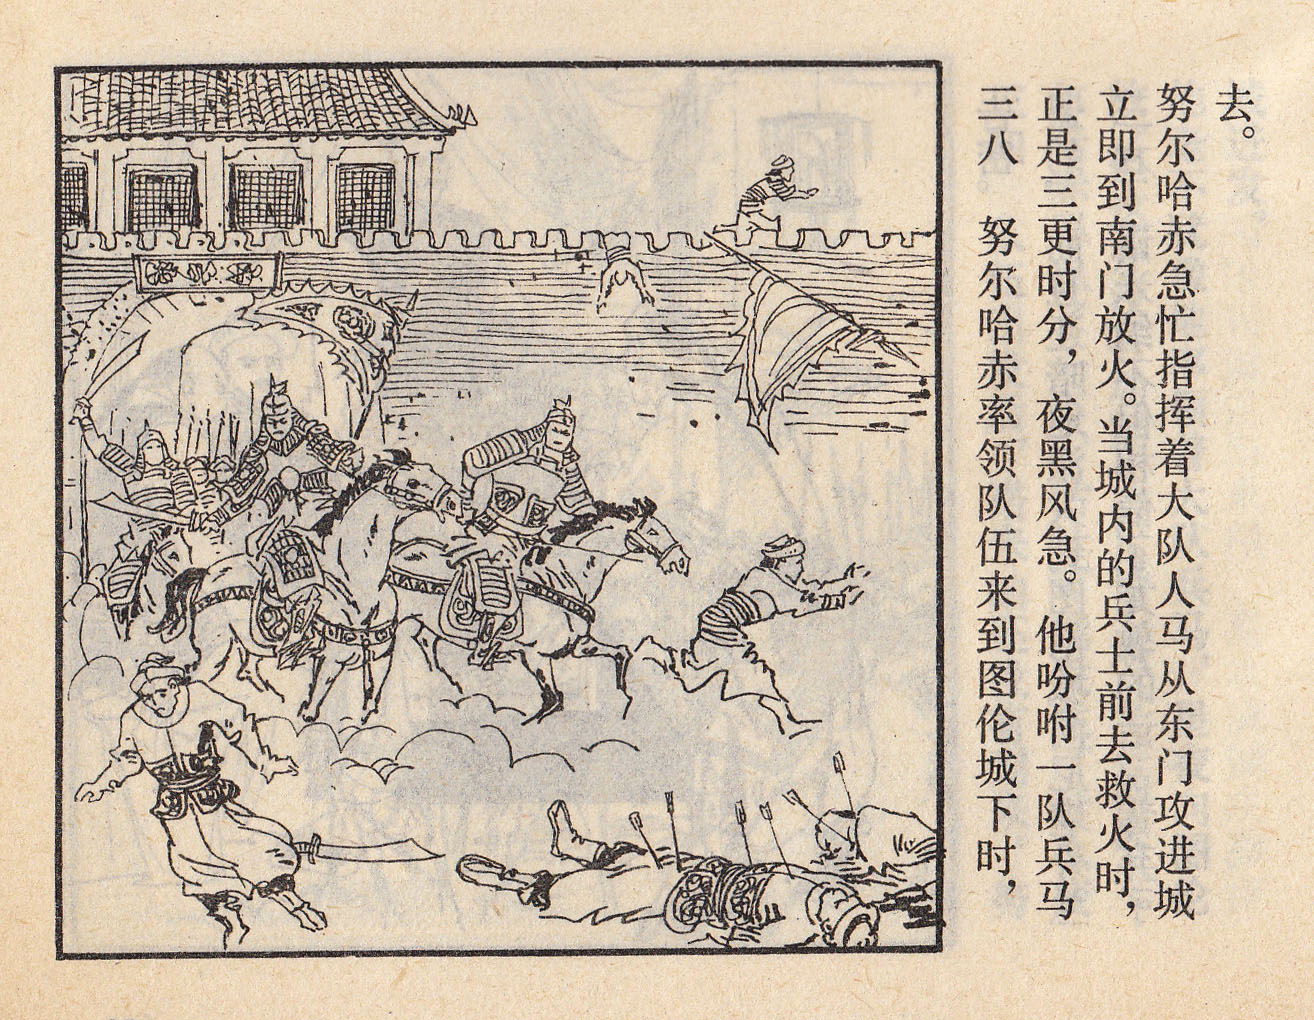 三八　努尔哈赤率领队伍来到图伦城下时，
正是三更时分，夜黑风急。他吩咐一队兵马
立即到南门放火。当城内的兵士前去救火时，
努尔哈赤急忙指挥着大队人马从东门攻进城
去。